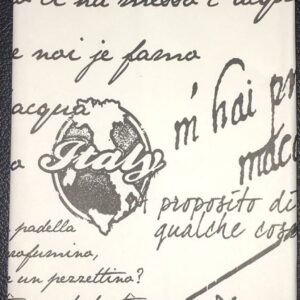 ci ha messo l'acqu
e noi je famo
acqua
m'hai pr
macc
Italy
A proposito di
qualche cosa
padella
profumino,
e un pezzettino?